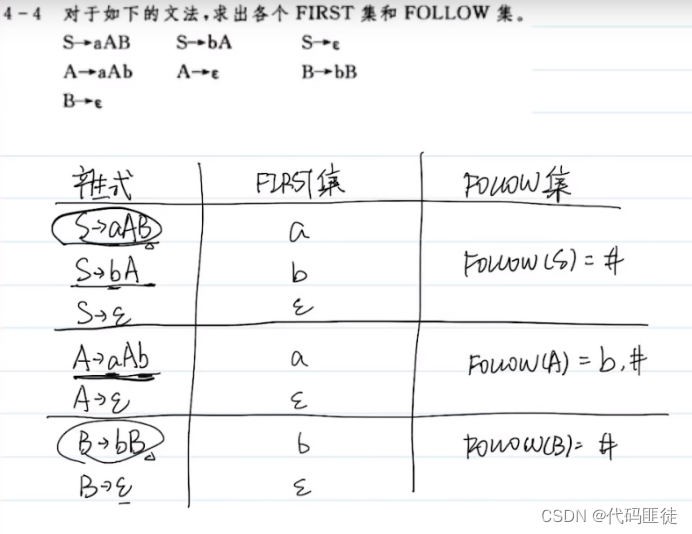 4-4 对于如下的文法,求出各个 FIRST 集和 FOLLOW 集。
S→aAB S→bA S→ε
A→aAb A→ε B→bB
B→ε
产生式 FIRST集 FOLLOW集
S→aAB a
FOLLOW(S) = #
S→bA b
S→ε ε
A→aAb a FOLLOW(A) = b,#
A→ε ε
B→bB b FOLLOW(B)= #
B→ε ε
CSDN @代码匪徒